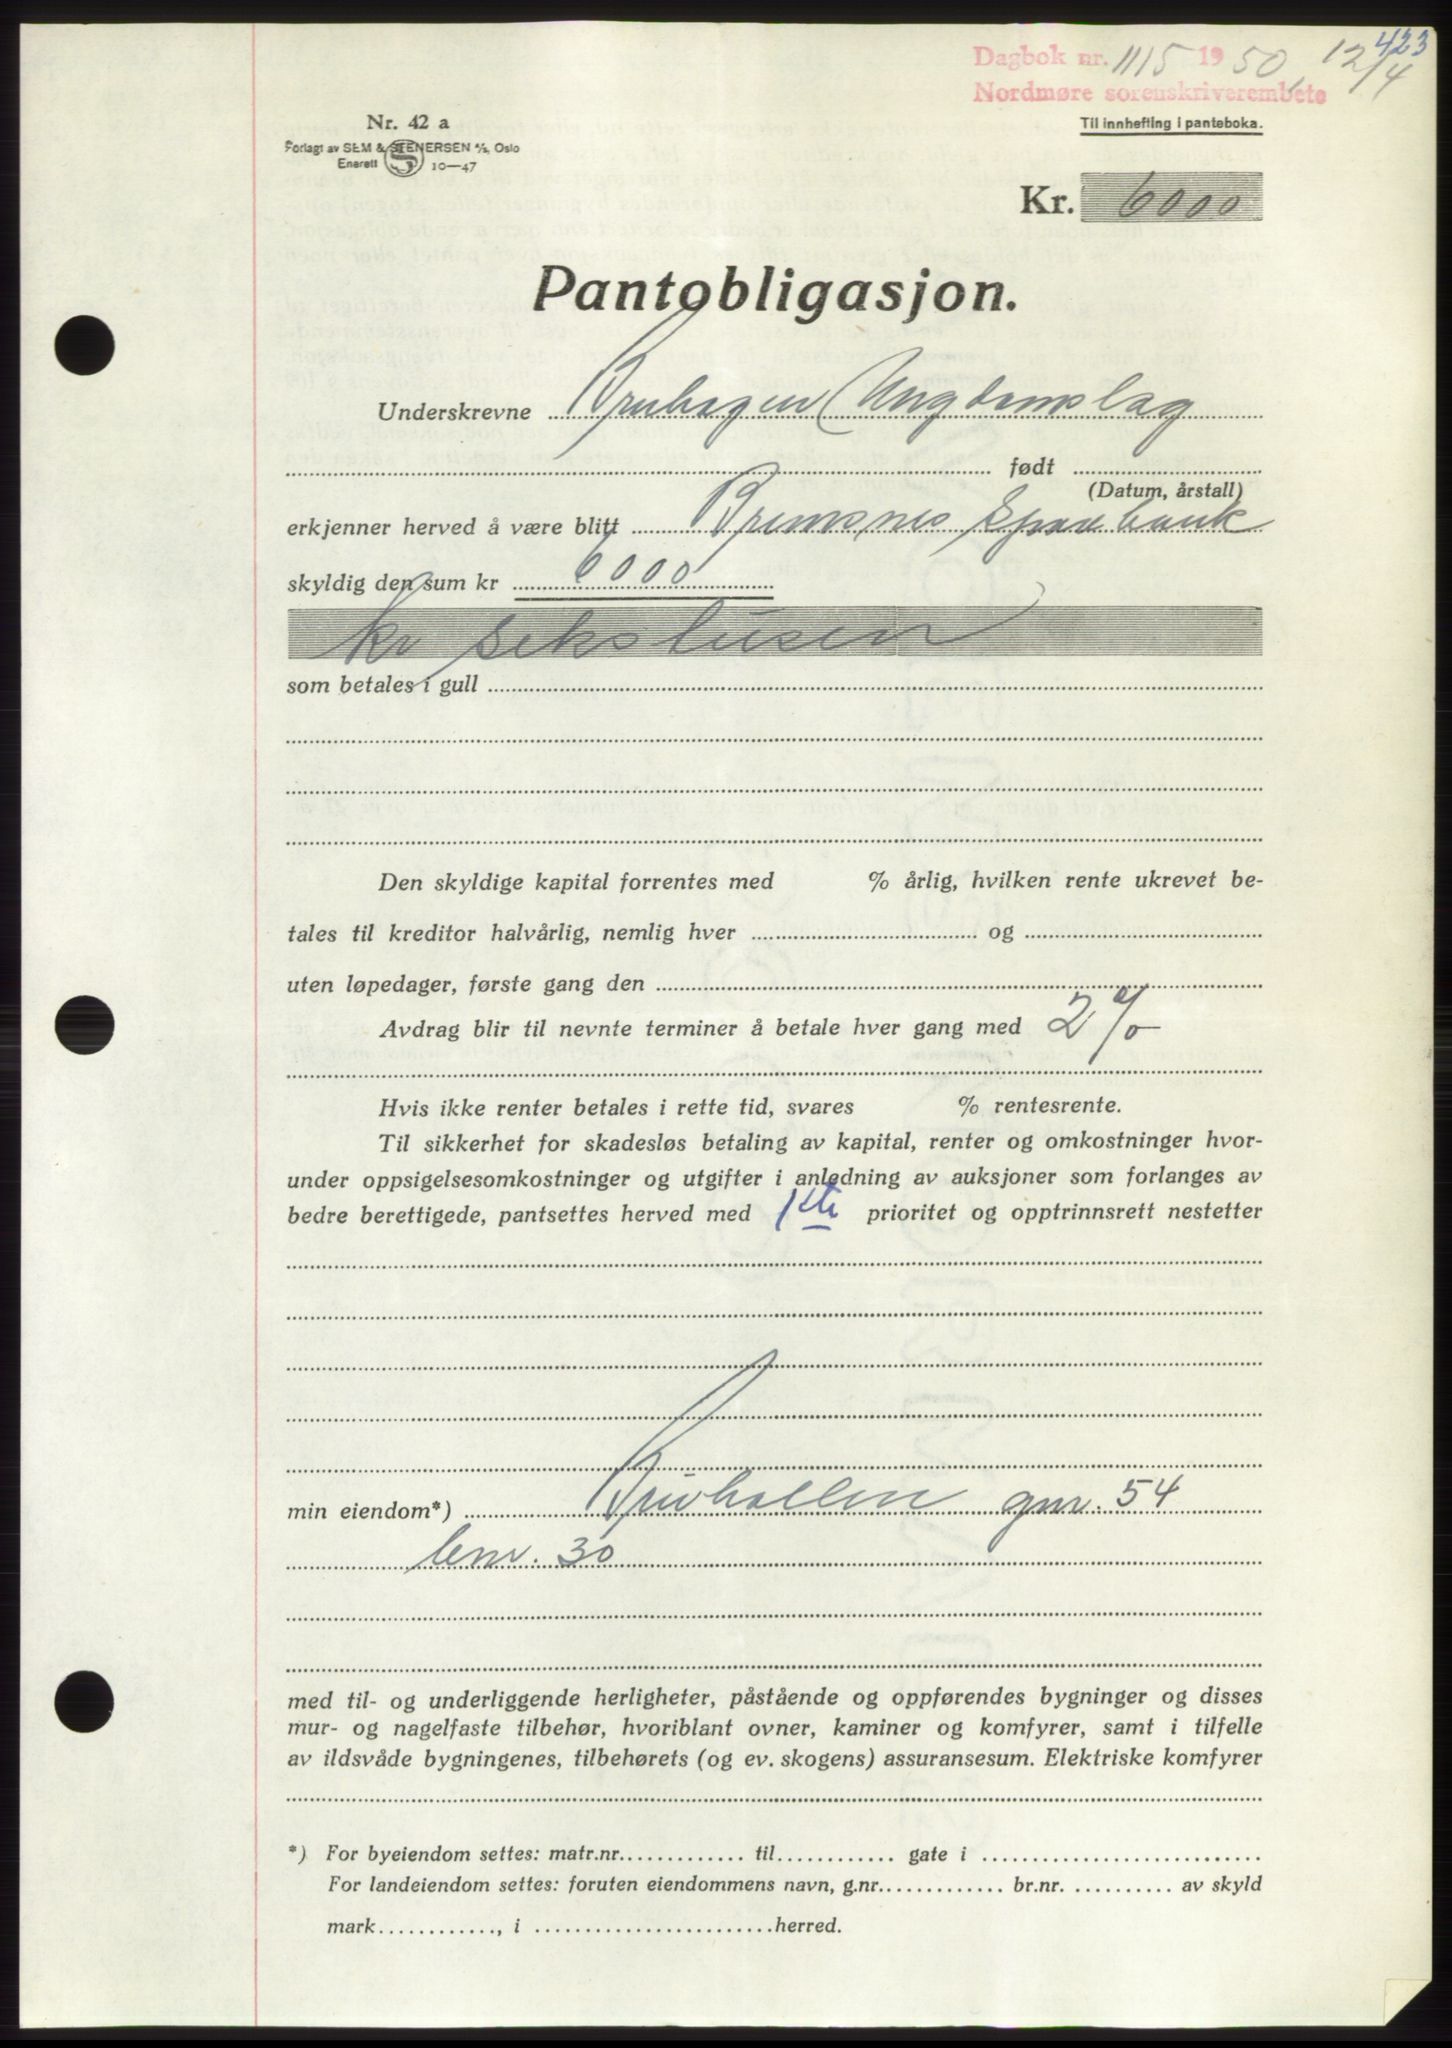 423
Dagbok nr. 1115 1950 12/4
Nordmøre sorenskriverembete
Til innhefting i panteboka.
Nr. 42 a
Forlagt av SEM & STENERSEN A/S, Oslo
Enerett S 10—47
Kr. 6000
Pantobligasjon.
Underskrevne Bruhagen Ungdomslag
født
(Datum, årstall)
erkjenner herved å være blitt Bremsnes Sparebank
skyldig den sum kr 6000
kr sekstusen
som betales i gull
Den skyldige kapital forrentes med % årlig, hvilken rente ukrevet be-
tales til kreditor halvårlig, nemlig hver og
uten løpedager, første gang den
Avdrag blir til nevnte terminer å betale hver gang med 2%
Hvis ikke renter betales i rette tid, svares % rentesrente.
Til sikkerhet for skadesløs betaling av kapital, renter og omkostninger hvor-
under oppsigelsesomkostninger og utgifter i anledning av auksjoner som forlanges av
bedre berettigede, pantsettes herved med 1ste prioritet og opptrinnsrett nestetter
min eiendom*) Bruhallen gnr. 54
bnr. 30
med til- og underliggende herligheter, påstående og oppførendes bygninger og disses
mur- og nagelfaste tilbehør, hvoriblant ovner, kaminer og komfyrer, samt i tilfelle
av ildsvåde bygningenes, tilbehørets (og ev. skogens) assuransesum. Elektriske komfyrer
*) For byeiendom settes: matr.nr. til gate i
For landeiendom settes: foruten eiendommens navn, g.nr. br.nr. av skyld
mark , i herred.